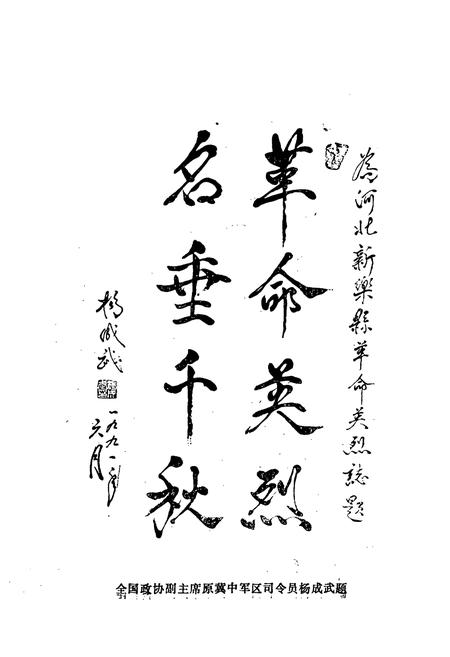 为河北新樂縣革命英烈誌題
革命英烈
名垂千秋
楊成武
一九九一年
六月
全国政协副主席原冀中军区司令员杨成武题